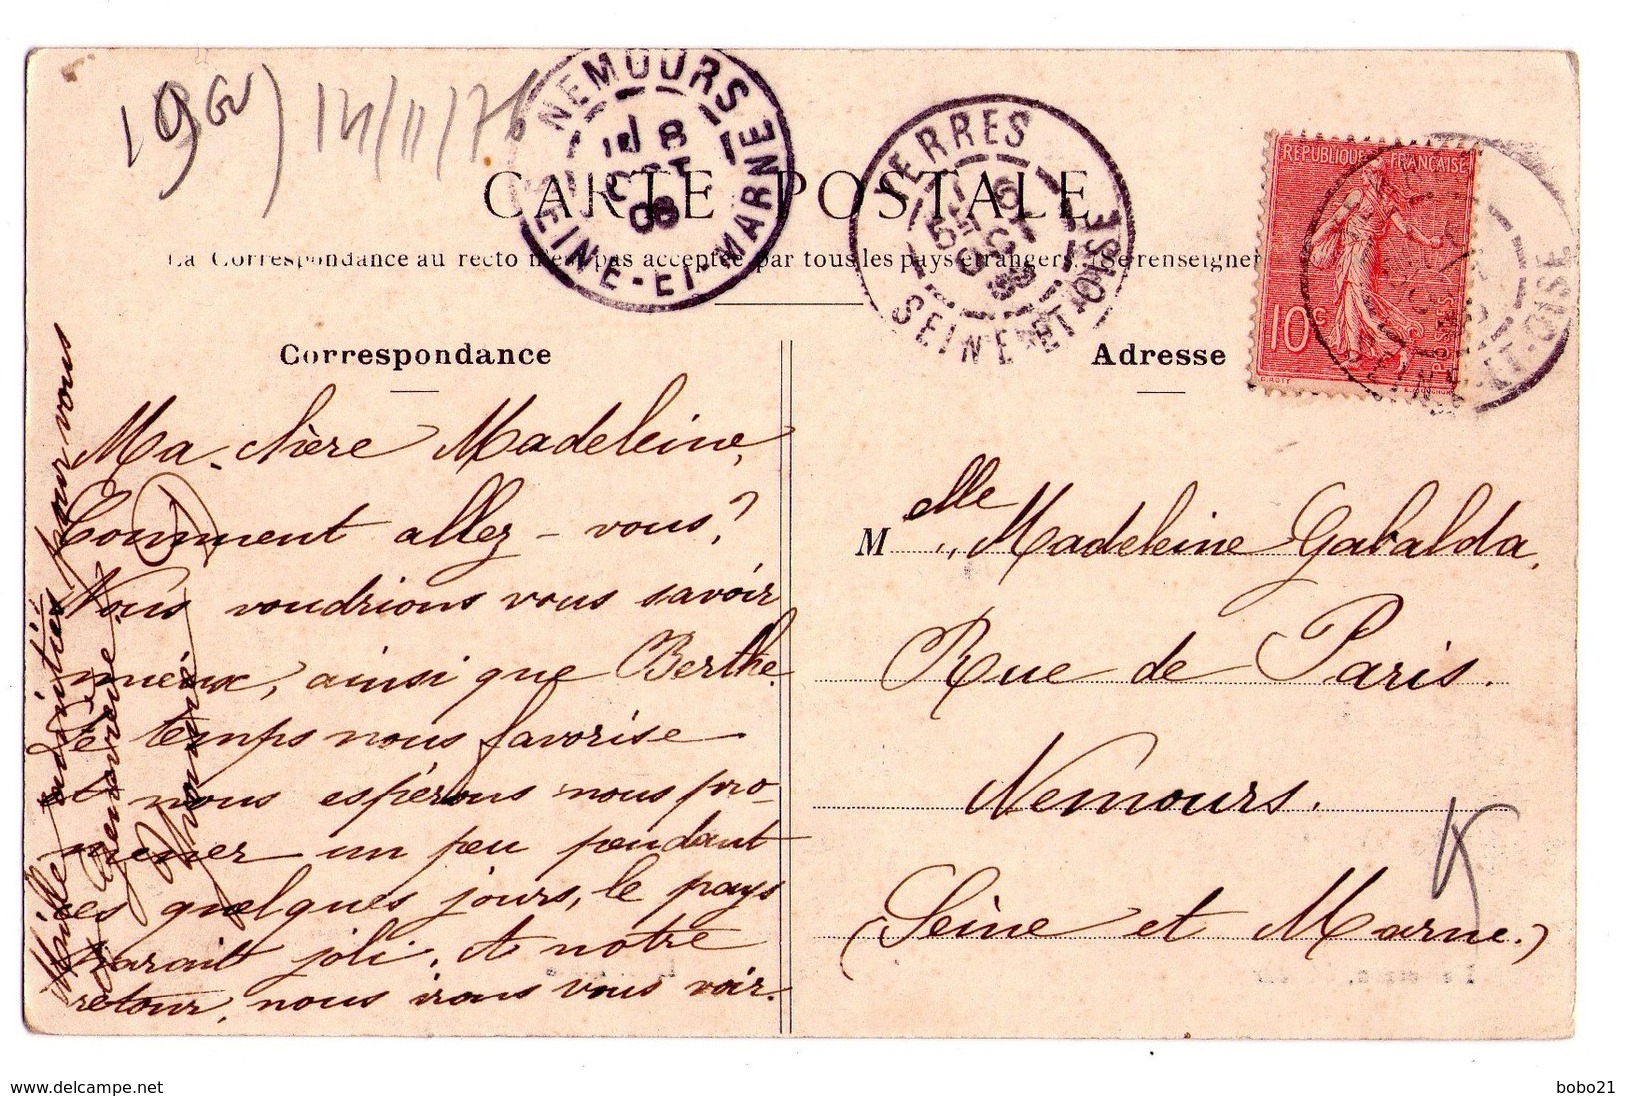 NEMOURS
8
OCT
06
SEINE-ET-MARNE
YERRES
SEINE-ET-OISE
REPUBLIQUE FRANÇAISE
10c
POSTES
CARTE POSTALE
La Correspondance au recto n'est pas acceptée par tous les pays étrangers. (Se renseigner
Correspondance
Adresse
Ma chère Madeleine,
Comment allez-vous?
Nous voudrions vous savoir
mieux, ainsi que Berthe.
Le temps nous favorise
et nous espérons nous pro-
mener un peu pendant
ces quelques jours, le pays
parait joli, et notre
retour, nous irons vous voir.
Mille amitiés pour vous
Melle Madeleine Gabalda,
Rue de Paris.
Nemours.
(Seine et Marne.)
www.delcampe.net
bobo21